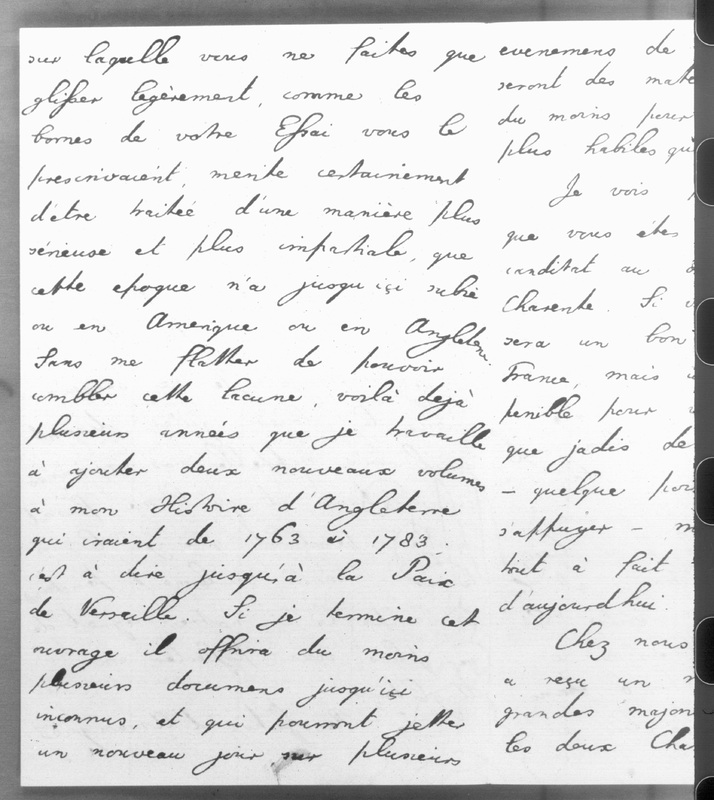 sur laquelle vous ne faites que
glisser legèrement, comme les
bornes de votre Essai vous le
prescrivaient, merite certainement
d'être traitée d'une manière plus
sérieuse et plus impartiale, que
cette epoque n'a jusqu'içi subie
ou en Amerique ou en Angleterre.
Sans me flatter de pouvoir
combler cette lacune, voilà dejà
plusieurs années que je travaille
à ajouter deux nouveaux volumes
à mon Histoire d'Angleterre
qui iraient de 1763 à 1783.
c'est à dire jusqu'à la Paix
de Verseille. Si je termine cet
ouvrage il offrira du moins
plusieurs documens jusqu'içi
inconnus, et qui pourront jetter
un nouveau jour sur plusieurs
evenemens de
seront des mate
du moins pour
plus habiles qu
Je vois
que vous étes
canditat au
Charente. Si v
sera un bon
France, mais
penible pour
que jadis de
– quelque poi
s'appuyer – m
tout à fait
d'aujourd'hui.
Chez nous
a reçu un
grandes major
les deux Cha